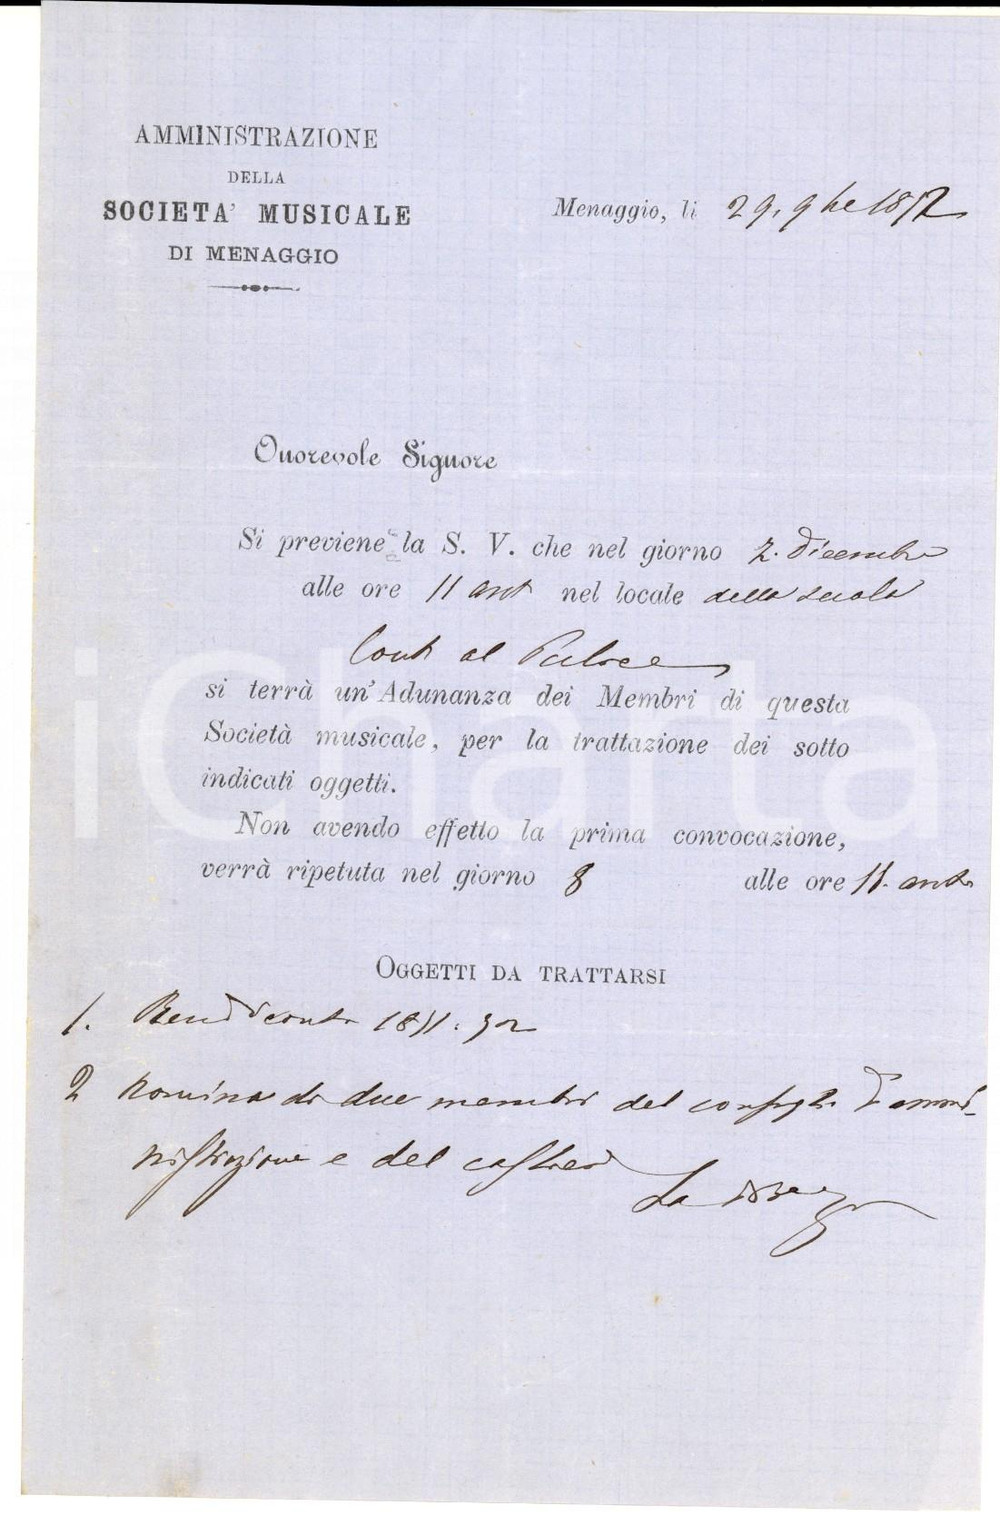 AMMINISTRAZIONE
DELLA
SOCIETA' MUSICALE
DI MENAGGIO
Menaggio, li 29. 9bre 1872
Onorevole Signore
Si previene la S. V. che nel giorno 2. Dicembre
alle ore 11 ant nel locale della scuola
al
si terrà un' Adunanza dei Membri di questa
Società musicale, per la trattazione dei sotto
indicati oggetti.
Non avendo effetto la prima convocazione,
verrà ripetuta nel giorno 8 alle ore 11. ant.
OGGETTI DA TRATTARSI
1. Rendiconto 1871.72
2 Nomina di due membri del consiglio d'ammi-
nistrazione e del cassiere
La
iCharta